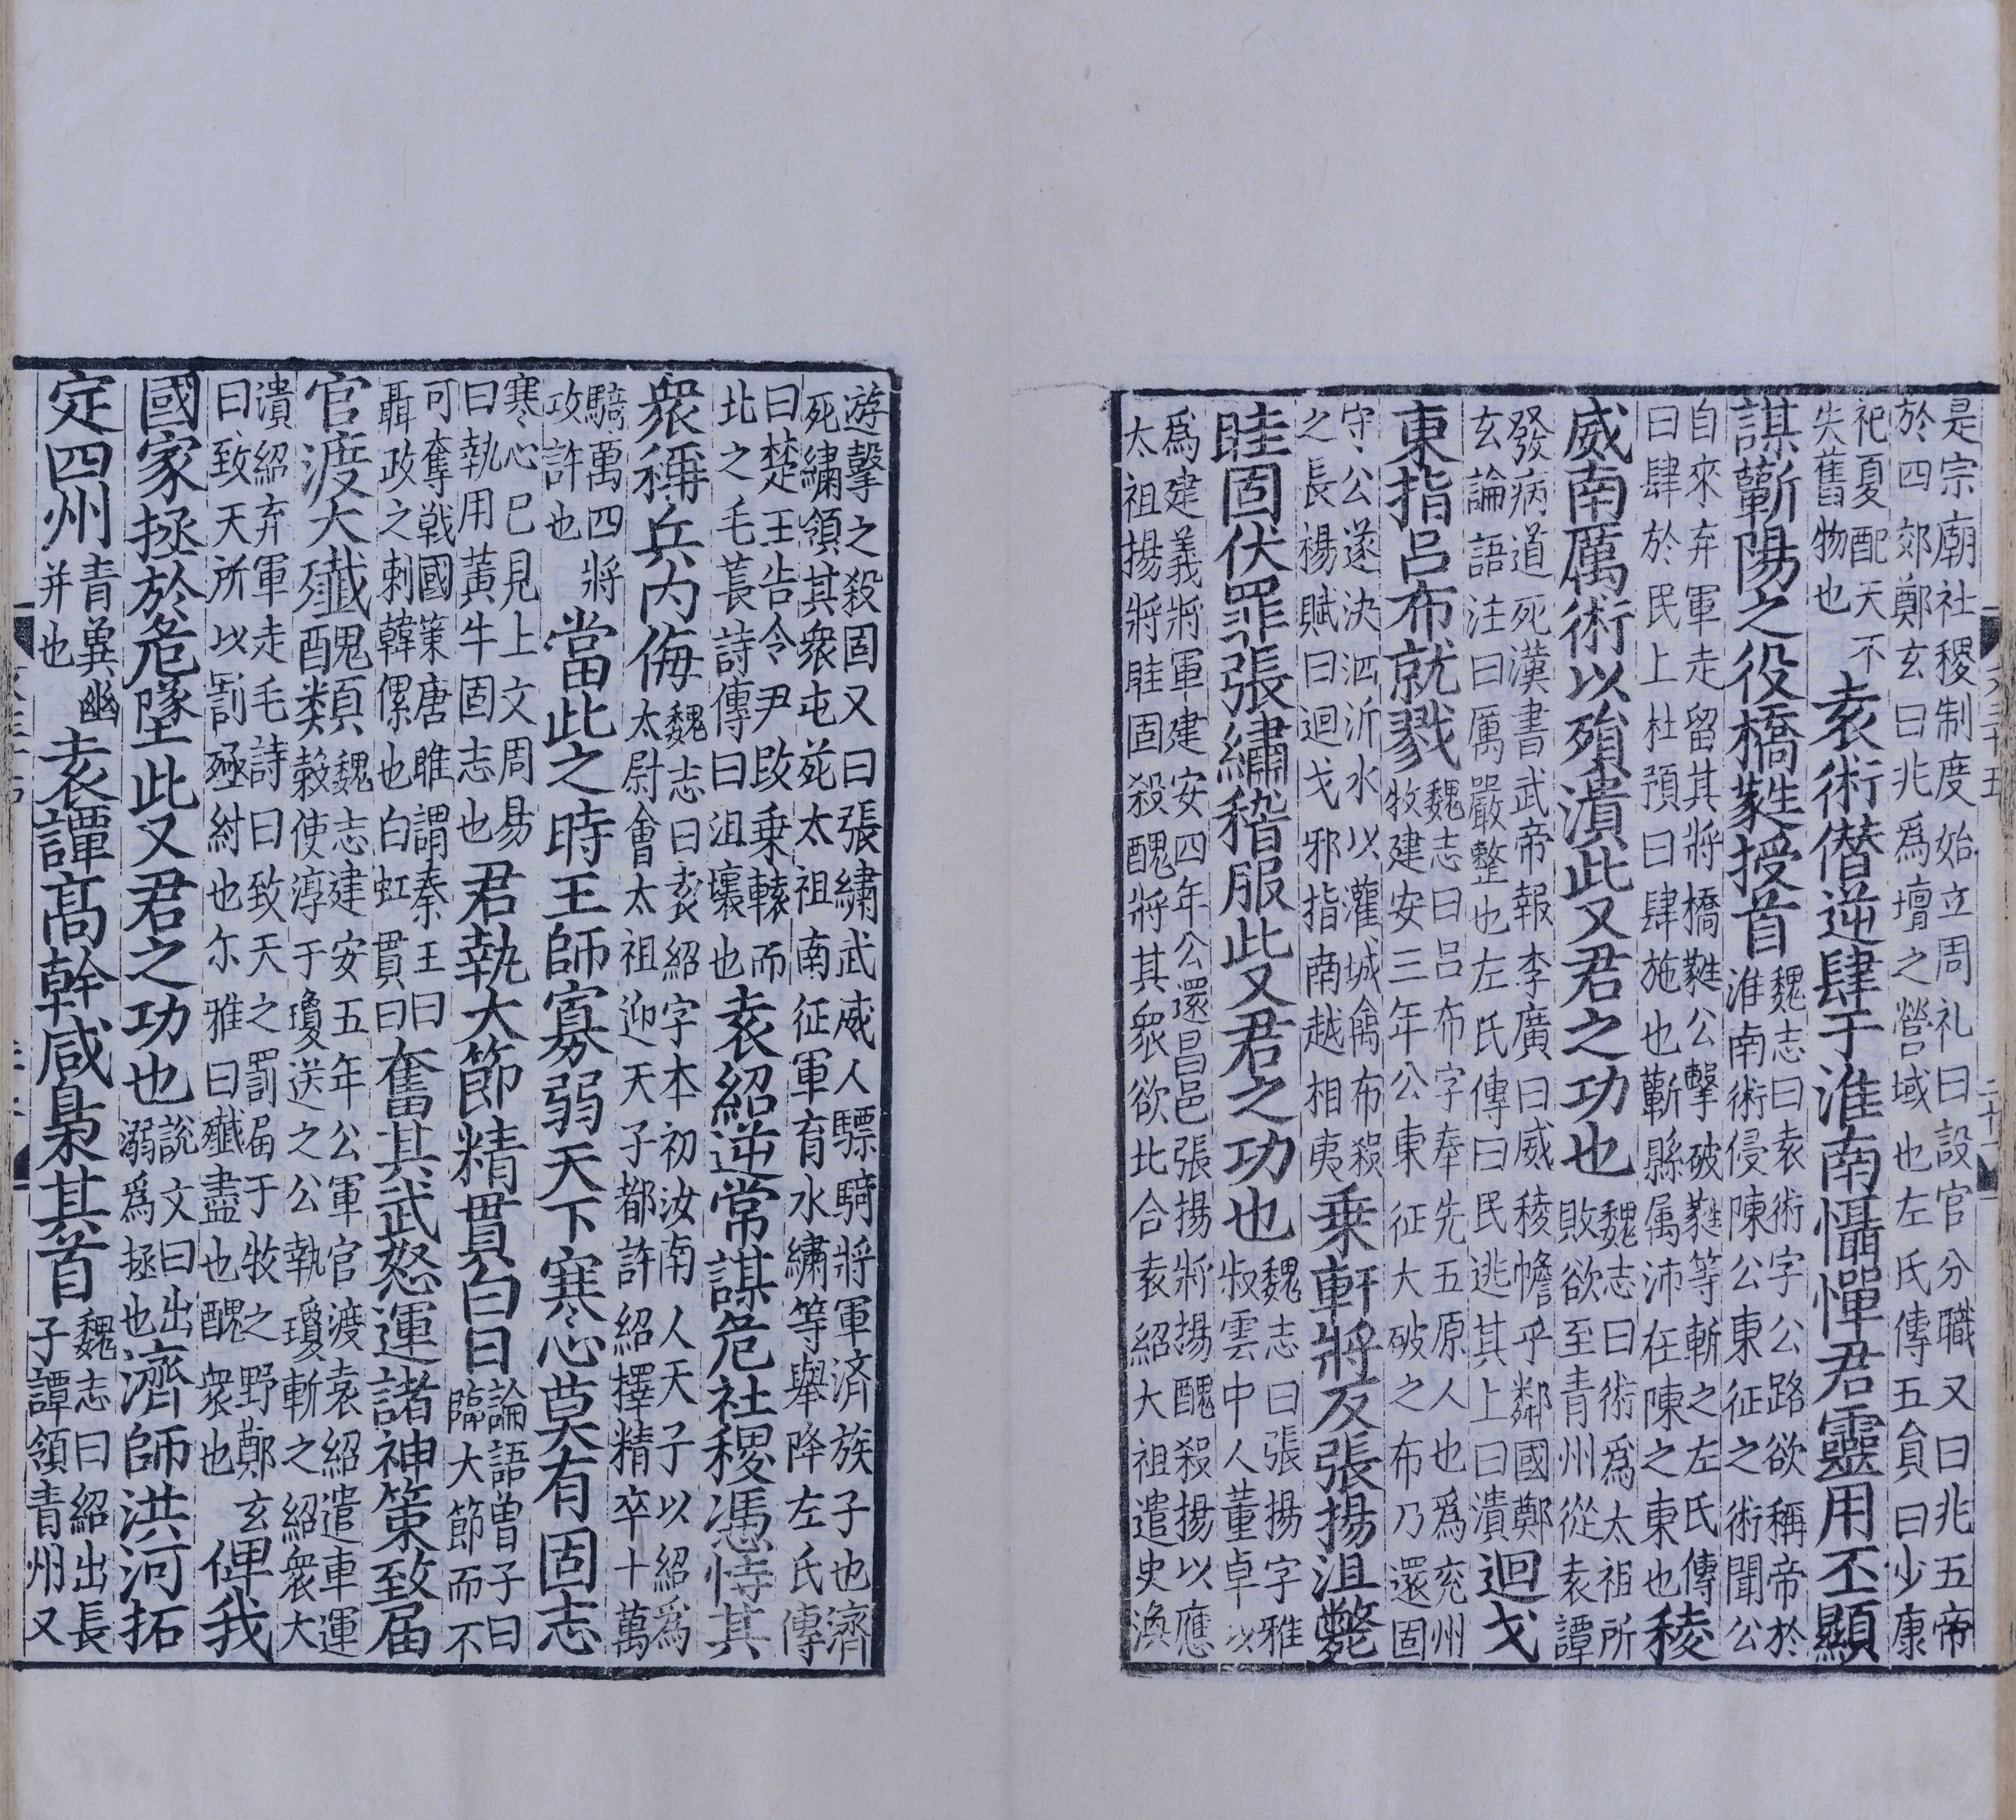 是宗廟社稷制度始立周礼曰設官分職又曰兆五帝
於四郊鄭玄曰兆爲壇之營域也左氏傳五貟曰少康
祀夏配天不
失舊物也
袁術僣逆肆于淮南懾憚君靈用丕顯
謀蘄陽之役橋蕤授首
魏志曰袁術字公路欲稱帝於
淮南術侵陳公東征之術聞公
自來弃軍走留其將橋蕤公擊破蕤等斬之左氏傳
曰肆於民上杜預曰肆施也蘄縣属沛在陳之東也
稜
威南厲術以殞潰此又君之功也
魏志曰術爲太祖所
敗欲至青州從袁譚
發病道死漢書武帝報李廣曰威稜憺乎鄰國鄭
玄論語注曰厲嚴整也左氏傳曰民逃其上曰潰
迴戈
東指呂布就戮
魏志曰呂布字奉先五原人也爲兖州
牧建安三年公東征大破之布乃還固
守公遂決泗沂水以灌城禽布殺
之長楊賦曰迴戈邪指南越相夷
乗軒將反張揚沮斃
眭固伏罪張繡稽服此又君之功也
魏志曰張揚字雅
叔雲中人董卓以
爲建義將軍建安四年公還昌邑張揚將揚醜殺揚以應
太祖揚將眭固殺醜將其衆欲北合袁紹大祖遣史渙
游擊之殺固又曰張繡武威人驃騎將軍済族子也濟
死繡領其衆屯菀太祖南征軍育水繡等舉降左氏傳
曰楚王告令尹改乗轅而
北之毛萇詩傳曰沮壞也
袁紹逆常謀危社稷憑恃其
衆稱兵内侮
魏志曰袁紹字本初汝南人天子以紹爲
太尉會太祖迎天子都許紹擇精卒十萬
騎萬四將
攻許也
當此之時王師寡弱天下寒心莫有固志
寒心已見上文周易
曰執用黃牛固志也
君執大節精貫白日
論語曽子曰
臨大節而不
可奪戰國策唐雎謂秦王曰
聶政之刺韓傫也白虹貫曰
奮其武怒運諸神策致届
官渡大殲醜類
魏志建安五年公軍官渡袁紹遣車運
糓使淳于瓊送之公執瓊斬之紹衆大
潰紹弃軍走毛詩曰致天之罰届于牧之野鄭玄
曰致天所以罰殛紂也尓雅曰殲盡也醜衆也
俾我
國家拯於危墜此又君之功也
說文曰出
溺爲拯也
濟師洪河拓
定四州
青兾幽
并也
袁譚高幹咸梟其首
魏志曰紹出長
子譚領青州又